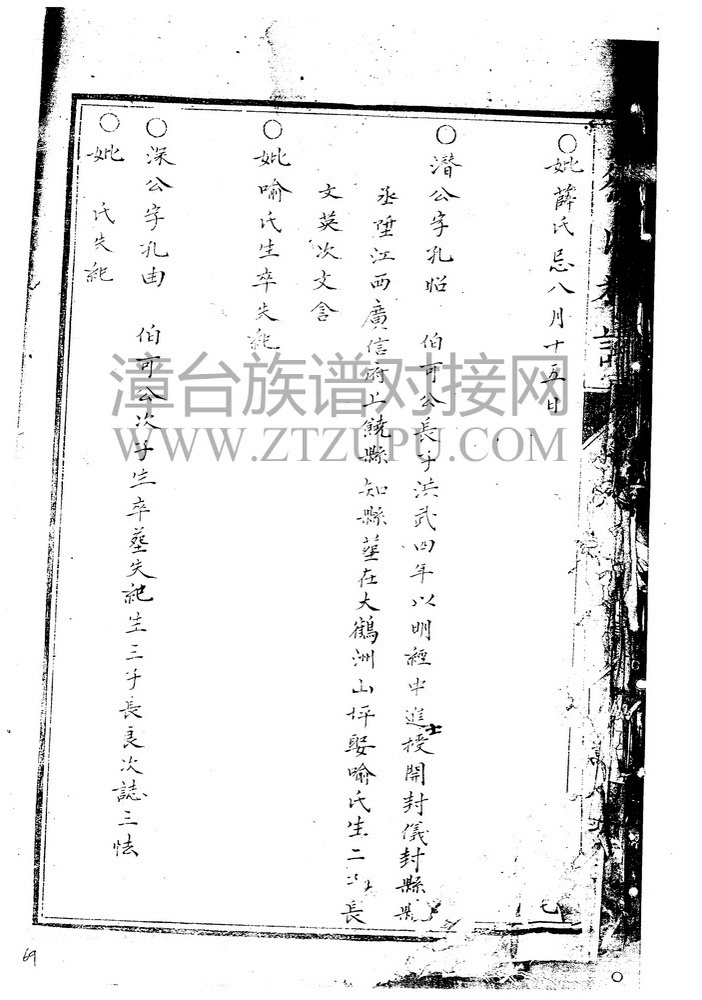 ○妣薛氏忌八月十五日
○潛公字孔昭 伯可公長子洪武四年以明經中進士授開封儀封縣縣
丞陞江西廣信府上饒縣知縣塟在大鶴洲山坪娶喻氏生二子長
文英次文含
○妣喻氏生卒失紀
○深公字孔由 伯可公次子生卒塟失紀生三子長良次誌三怯
○妣 氏失紀
漳台族谱对接网
WWW.ZTZUPU.COM
69